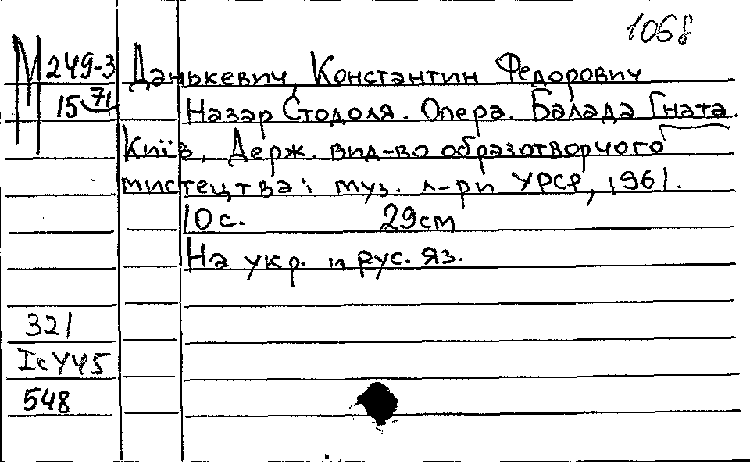 1068
М 249-3 Данькевич, Константин Федорович
15 71 Назар Стодоля. Опера. Балада Гната.
Київ, Держ. вид-во образотворчого
мистецтва і муз. л-ри УРСР, 1961.
10 с. 29см
На укр. и рус. яз.
321
IcУ45
548